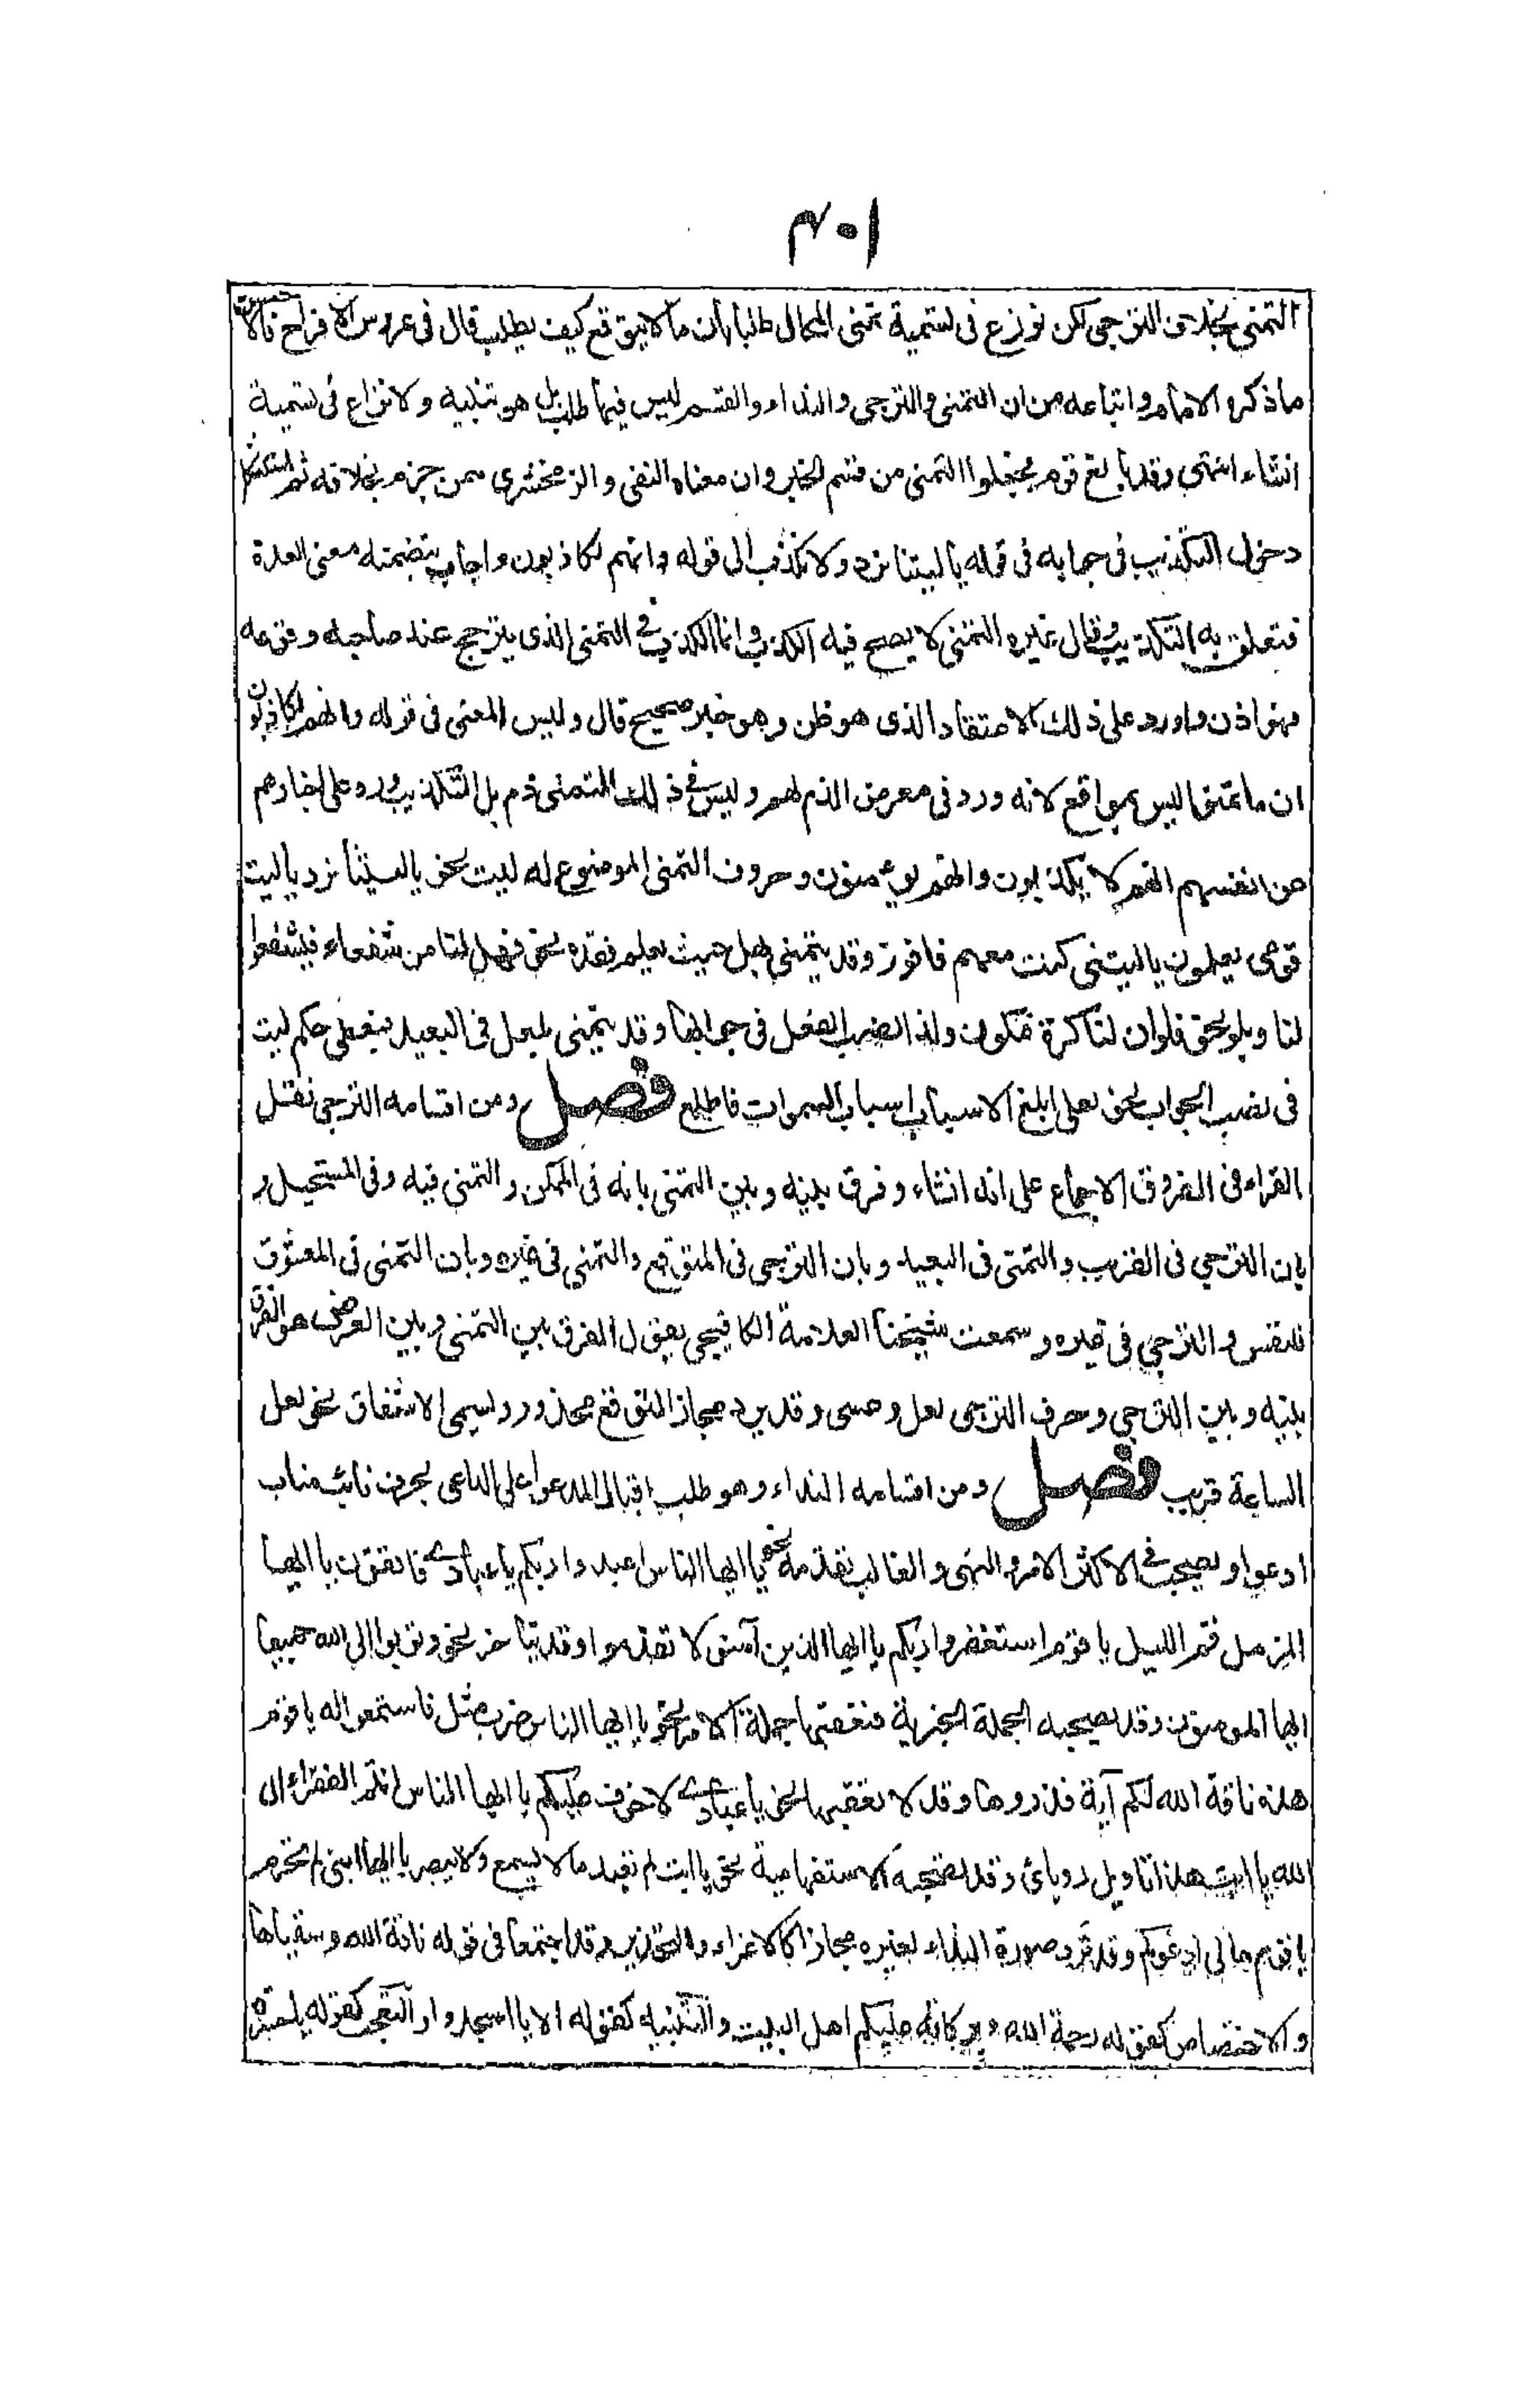 ٣٠١
التمنى بخلاف الترجى لكن نوزع فى تسمية تمنى المحال طلبا بان ما لا يتوقع كيف يطلب قال فى عروس الافراح فالاحسن
ما ذكره الامام واتباعه من ان التمنى والترجى والنداء والقسم ليس فيها طلب بل هو تنبيه ولا نزاع فى تسمية
انشاء انتهى وقد بالغ قوم فجعلوا التمنى من قسم الخبر وان معناه النفى والزمخشرى ممن جزم بخلافه ثم استشكل
دخول التكذيب فى جوابه فى قوله يا ليتنا نرد ولا نكذب الى قوله وانهم لكاذبون واجاب بتضمنه معنى العدة
فتعلق به التكذيب وقال غيره التمنى لا يصح فيه الكذب وانما الكذب فى التمنى الذى يترجح عند صاحبه وقوعه
فهو اذن وارد على ذلك الاعتقاد الذى هو ظن وهو خبر صحيح قال وليس المعنى فى قوله وانهم لكاذبون
ان ما تمنوا ليس بواقع لانه ورد فى معرض الذم لهم وليس فى ذلك التمنى ذم بل التكذيب ورد على اخبارهم
عن انفسهم انهم لا يكذبون وانهم يؤمنون وحروف التمنى الموضوع له ليت نحو يا ليتنا نرد يا ليت
قومى يعلمون يا ليتنى كنت معهم فافوز وقد يتمنى بهل حيث يعلم فقده نحو فهل لنا من شفعاء فيشفعوا
لنا وبلو نحو فلو ان لنا كرة فنكون ولذا نصب الفعل فى جوابها وقد يتمنى بلعل فى البعيد فيعطى حكم ليت
فى نصب الجواب نحو لعلى ابلغ الاسباب اسباب السموات فاطلع فصل ومن اقسامه الترجى نقل
القراء فى الفروق الاجماع على انه انشاء وفرق بينه وبين التمنى بانه فى الممكن والتمنى فيه وفى المستحيل و
بان الترجى فى القريب والتمنى فى البعيد وبان الترجى فى المتوقع والتمنى فى غيره وبان التمنى فى المعشوق
للنفس والترجى فى غيره وسمعت شيخنا العلامة الكافيجى يقول الفرق بين التمنى وبين العرض هو الفرق
بينه وبين الترجى وحرف الترجى لعل وعسى وقد يرد مجازا لتوقع محذور ويسمى الاشفاق نحو لعل
الساعة قريب فصل ومن اقسامه النداء وهو طلب اقبال المدعو على الداعى بحرف نائب مناب
ادعوا ويصحب فى الاكثر الامر والنهى والغالب تقدمه نحو يا ايها الناس اعبدوا ربكم يا عبادى فاتقون يا ايها
المزمل قم الليل يا قوم استغفروا ربكم يا ايها الذين آمنوا لا تقدموا وقد يتاخر نحو وتوبوا الى الله جميعا
ايها المومنون وقد يصحبه الجملة الخبرية فتعقبها جملة الامر نحو يا ايها الناس ضرب مثل فاستمعوا له يا قوم
هذه ناقة الله لكم آية فذروها وقد لا تعقبها نحو يا عبادى لا خوف عليكم يا ايها الناس انتم الفقراء الى
الله يا ابت هذا تاويل رويائ وقد تصحبه الاستفهامية نحو يا ابت لم تعبد ما لا يسمع ولا يبصر يا ايها النبى لم تحرم
يا قوم ما لى ادعوكم وقد ترد صورة النداء لغيره مجازا كالاغراء والتحذير وقد اجتمعا فى قوله ناقة الله وسقياها
والاختصاص كقوله رحمة الله وبركاته عليكم اهل البيت والتنبيه كقوله الا يا اسجدوا والتعجب كقوله يا حسرة